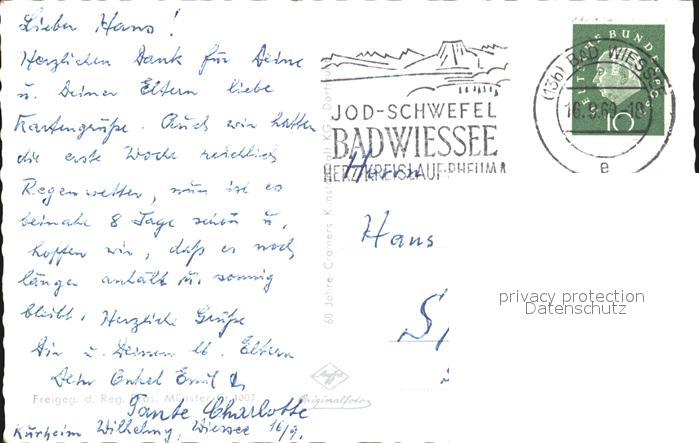 Lieber Hans!
Herzlichen Dank für Deine
u. Deiner Eltern liebe
Kartengrüße. Auch wir hatten
die erste Woche reichlich
Regenwetter, nun ist es
beinahe 8 Tage schön u.
hoffen wir, daß es noch
länger anhält u. sonnig
bleibt. Herzliche Grüße
Dir u. Deinen lb. Eltern
Dein Onkel Emil u.
Tante Charlotte
Kurheim Wilhelmy, Wiessee 16/9.
Freigeg. d. Reg. Präs. Münster Nr. 1007
Agfa
Originalfoto
60 Jahre Cramers Kunstanstalt KG Dortmund
JOD-SCHWEFEL
BAD WIESSEE
HERZ KREISLAUF RHEUMA
(13b) BAD WIESSEE
16.9.60-18
e
DEUTSCHE BUNDESPOST
10
Herrn
Hans
privacy protection
Datenschutz